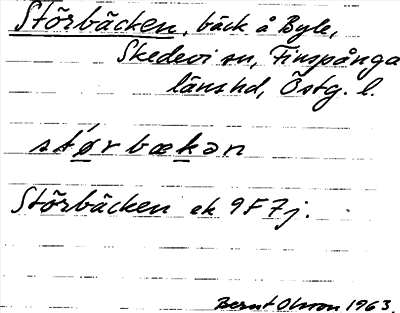 Störbäcken, bäck å Byle,
Skedevi sn, Finspånga
läns hd, Östg. l.
stǿr bækən
Störbäcken ek 9F7j.
Bernt Olsson 1963.